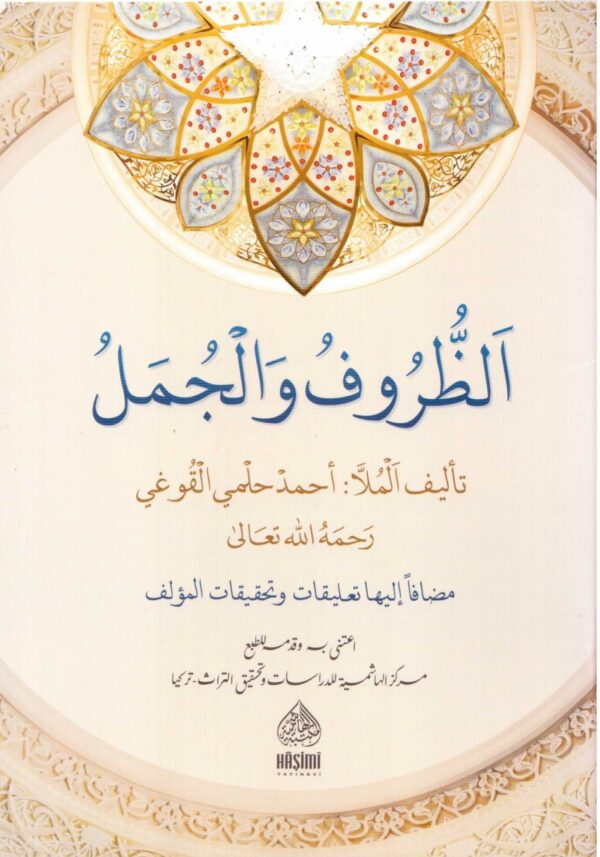 اَلظُّرُوفُ وَالْجُمَلُ
تأليف اَلْمُلاَّ: أحمدْ حلْمي الْقُوغي
رَحمَهُ الله تعَالىٰ
مضافاً إليها تعليقات وتحقيقات المؤلف
اعتنى به وقدمه للطبع
مركز الهاشمية للدراسات وتحقيق التراث-تركيا
HÂŞİMÎ
YAYINEVİ